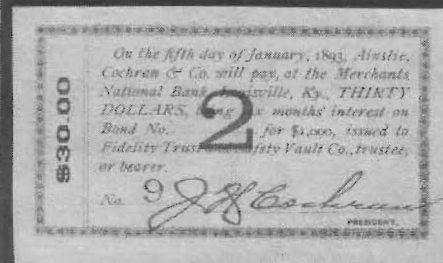 $30.00
On the fifth day of January, 1893, Ainslie,
Cochran & Co. will pay, at the Merchants
National Bank, Louisville, Ky., THIRTY
DOLLARS, being six months' interest on
Bond No. for $1,000, issued to
Fidelity Trust and Safety Vault Co., trustee,
or bearer.
2
No. 9 J H Cochran
PRESIDENT.